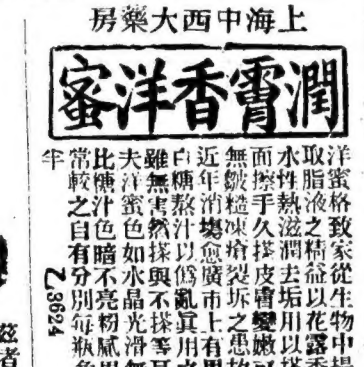 上海中西大藥房
潤膚香洋蜜
洋蜜格致家從生物中提
取脂液之精益以花露香
水性熱滋潤去垢用以搽
面擦手久搽皮膚變嫩可
無皺糙凍瘡裂坼之患故
近年消塲愈廣市上有用
白糖熬汁以僞亂眞用之
雖無害然搽與不搽等耳
夫洋蜜色如水晶光滑無
比糖汁色暗不亮粉膩
常較之自有分別每瓶
半
乙3624
茲者